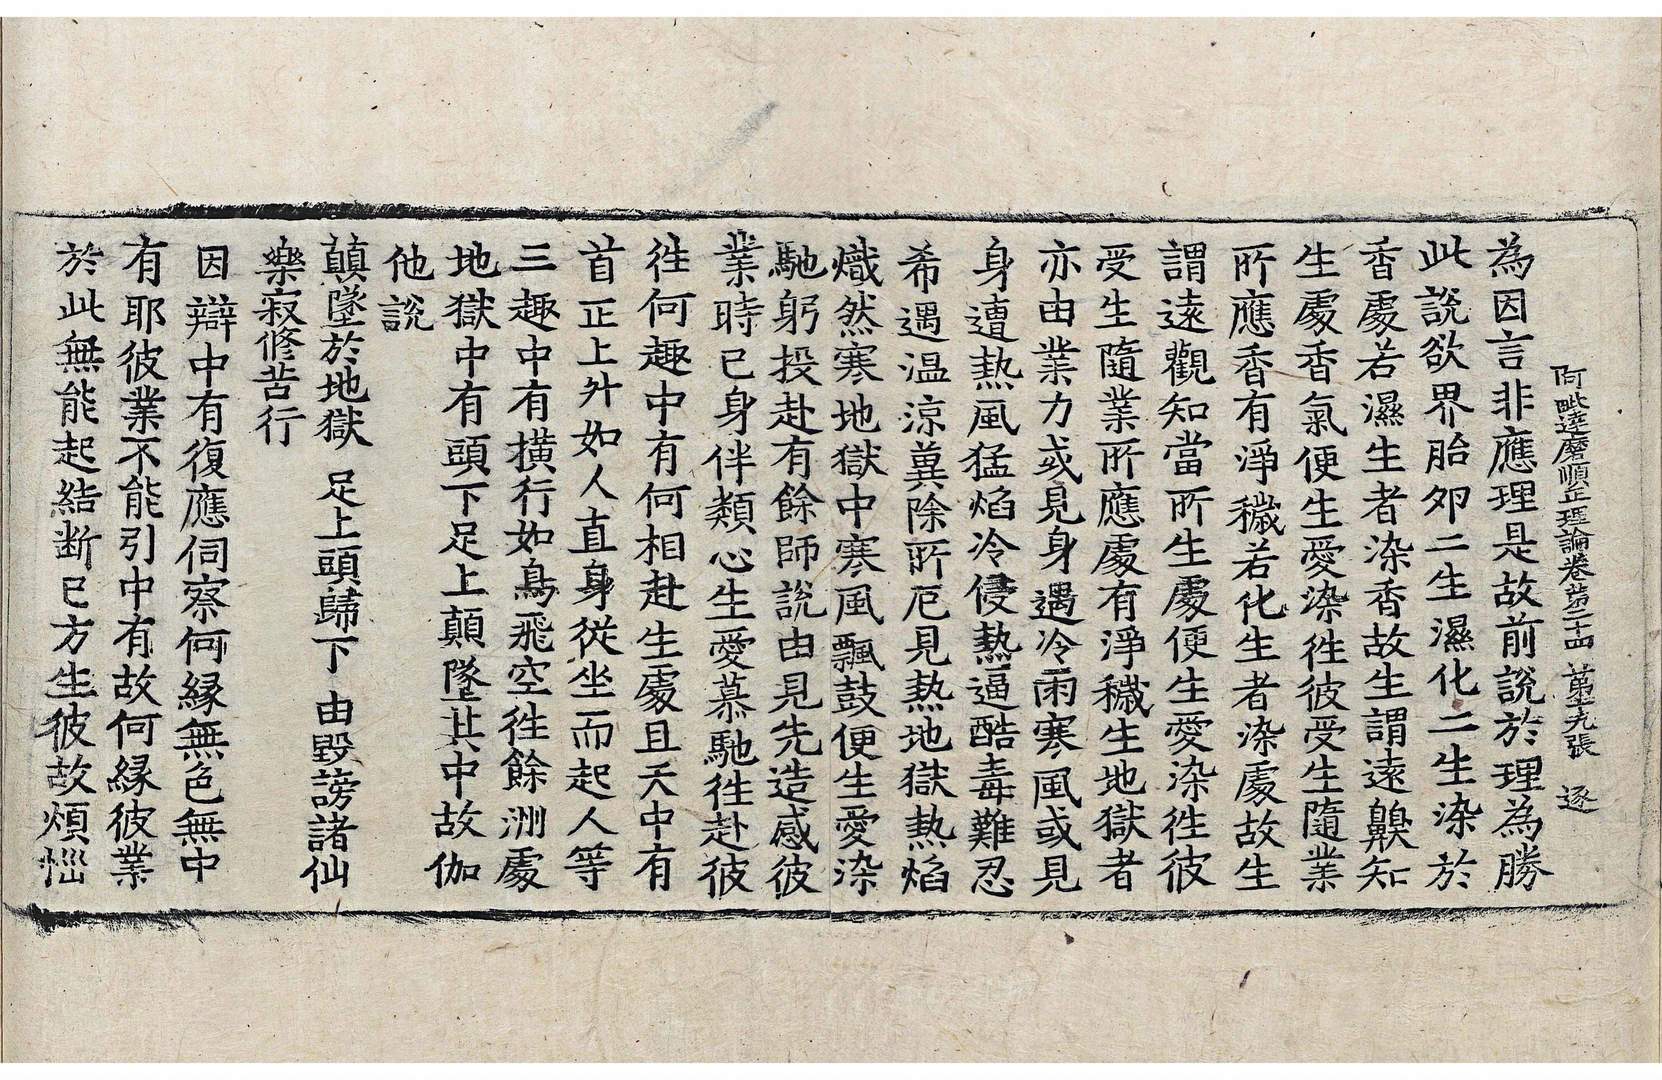 阿毗達磨順正理論卷第二十四 第十九張 逐
為因言非應理是故前說於理為勝
此說欲界胎卵二生濕化二生染於
香處若濕生者染香故生謂遠齅知
生處香氣便生愛染徃彼受生隨業
所應香有淨穢若化生者染處故生
謂遠觀知當所生處便生愛染徃彼
受生隨業所應處有淨穢生地獄者
亦由業力或見身遇冷雨寒風或見
身遭熱風猛焰冷侵熱逼酷毒難忍
希遇温涼冀除所厄見熱地獄熱焰
熾然寒地獄中寒風飄鼓便生愛染
馳躬投赴有餘師說由見先造感彼
業時已身伴類心生愛慕馳徃赴彼
徃何趣中有何相赴生處且天中有
首正上升如人直身從坐而起人等
三趣中有橫行如鳥飛空徃餘洲處
地獄中有頭下足上顛墜其中故伽
他說
顛墜於地獄 足上頭歸下 由毀謗諸仙
樂寂修苦行
因辯中有復應伺察何緣無色無中
有耶彼業不能引中有故何緣彼業
於此無能起結断已方生彼故煩惱